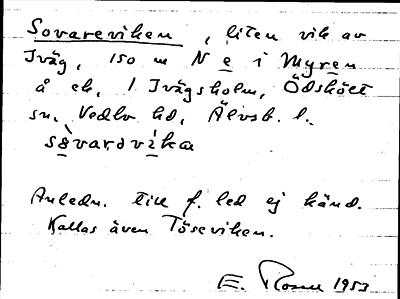 Sovareviken, liten vik av
Iväg, 150 m N e i Myren
å ek, 1 Ivägsholm, Ödskölt
sn, Vedbo hd, Älvsb. l.
sòvarəvi̱ka
Anledn. till f. led ej känd.
Kallas även Töseviken.
E. 1953